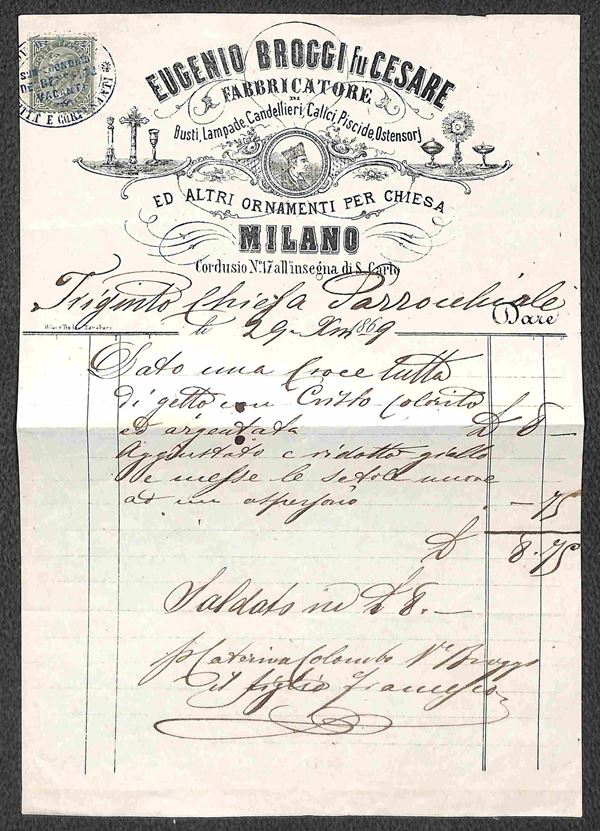 EUGENIO BROGGI fu CESARE
FABBRICATORE
DI
Busti, Lampade, Candellieri, Calici, Piscide, Ostensorj
ED ALTRI ORNAMENTI PER CHIESA
MILANO
Cordusio No. 17 all'insegna di S. Carlo
Chiesa Parrocchiale
29 1869
Dare
Dato una Croce tutta
di getto con Cristo colorito
ed argentata £ 8 —
Aggiustato e ridotto giallo
e messe le setole nuove
ad un aspersorio — 75
£ 8.75
Saldato in £ 8. —
p Caterina Colombo Va Broggi
il figlio Francesco